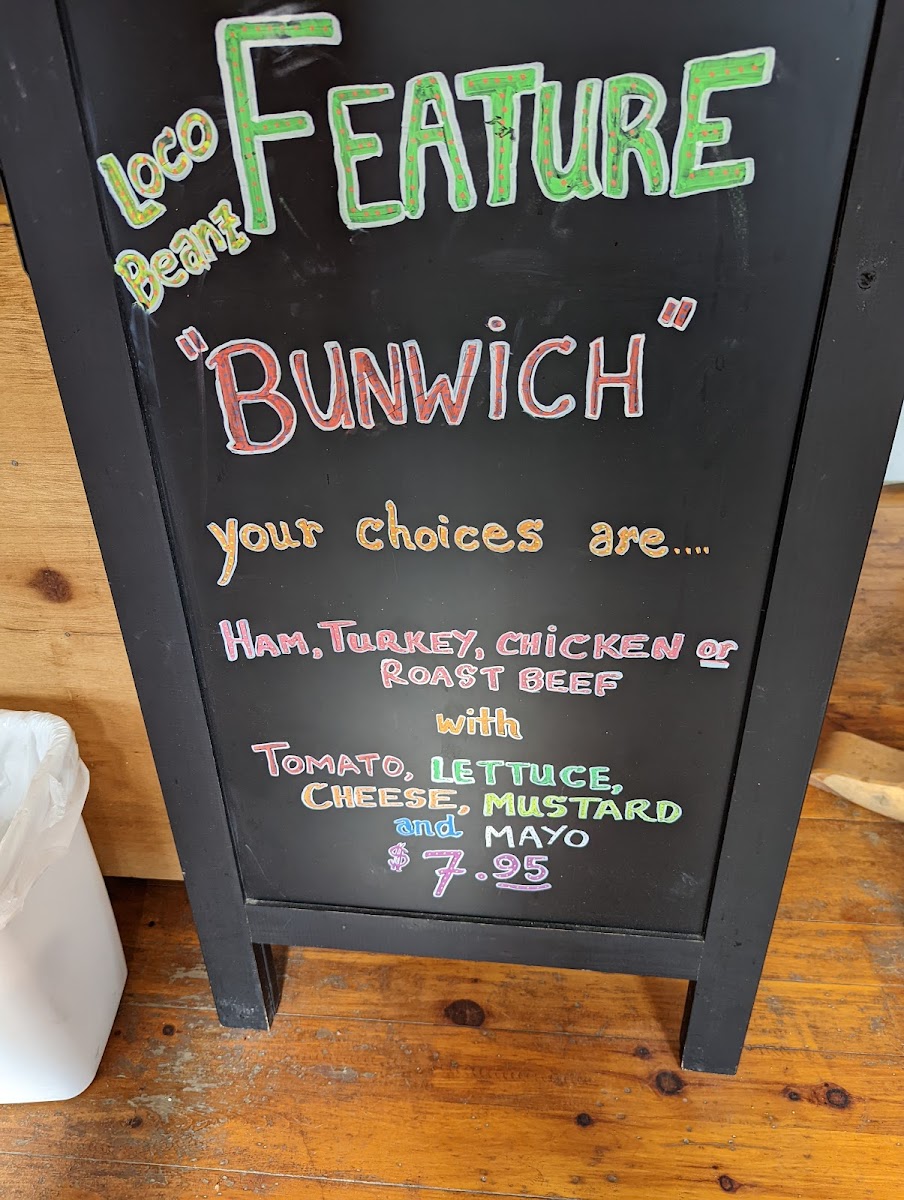 Loco
Beanz
FEATURE
"BUNWiCH"
your choices are....
HAM, TURKEY, CHICKEN or
ROAST BEEF
with
TOMATO, LETTUCE,
CHEESE, MUSTARD
and MAYO
$7.95